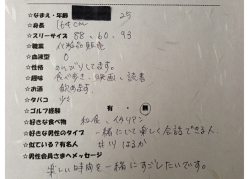 ☆なまえ・年齢 25
☆身長 164cm
☆スリーサイズ 88.60.93
☆職業 化粧品販売
☆血液型 O
☆性格 のんびりしてます。
☆趣味 食べ歩き、映画、読書
☆お酒 飲めます
☆タバコ 少々
☆ゴルフ経験 有・無
☆好きな食べ物 和食、イタリアン
☆好きな男性のタイプ 一緒にいて楽しく会話できる人
☆似ている?有名人 井川はるか
☆男性会員さまへメッセージ
楽しい時間を一緒にすごしたいです。